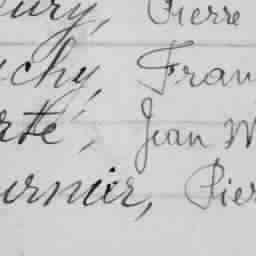 ury, Pierre
chy, Fran
rté, Jean W
urnier, Pier